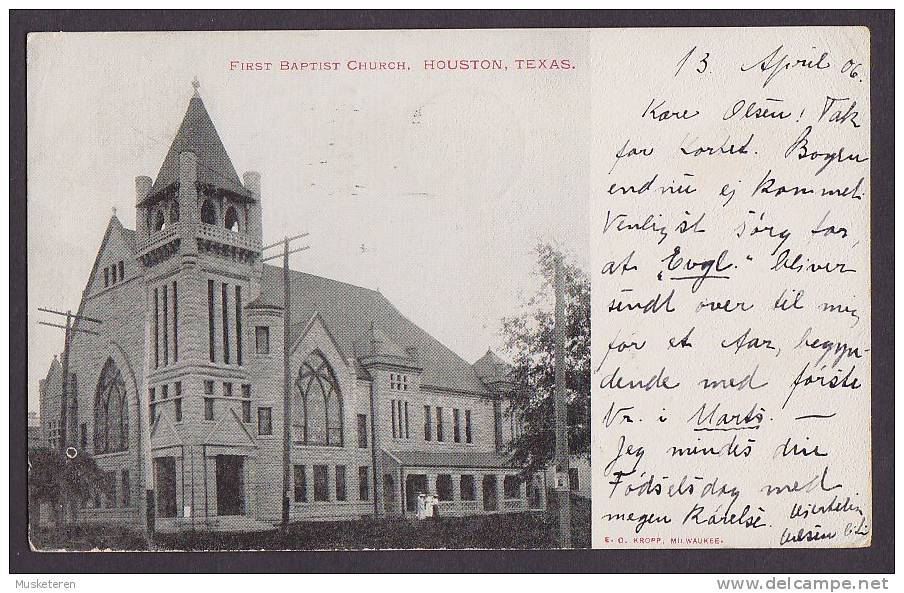 FIRST BAPTIST CHURCH, HOUSTON, TEXAS.
13. April 06.
Kære Olsen! Tak
for Kortet. Bogen
endnu ej kommet.
Venligst sørg for,
at "Evgl." bliver
sendt over til mig
for et Aar, begyn-
dende med første
Nr. i Marts. —
Jeg mindes din
Fødselsdag med
megen Kærlse.
E. C. KROPP, MILWAUKEE.
Musketeren
www.delcampe.net